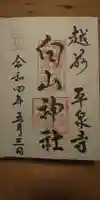 越前 平泉寺
白山神社
令和四年五月三日